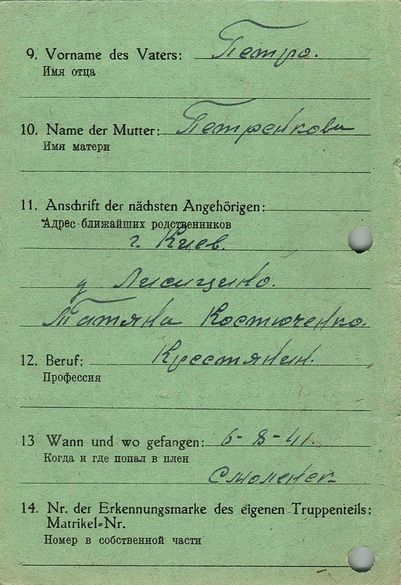 9. Vorname des Vaters: Петро.
Имя отца
10. Name der Mutter: Петренкова
Имя матери
11. Anschrift der nächsten Angehörigen:
Адрес ближайших родственников
г. Киев.
д Лисицино.
Татяна Костюченко.
12. Beruf: Крестянин.
Профессия
13 Wann und wo gefangen: 6-8-41.
Когда и где попал в плен
Смоленск
14. Nr. der Erkennungsmarke des eigenen Truppenteils:
Matrikel-Nr.
Номер в собственной части